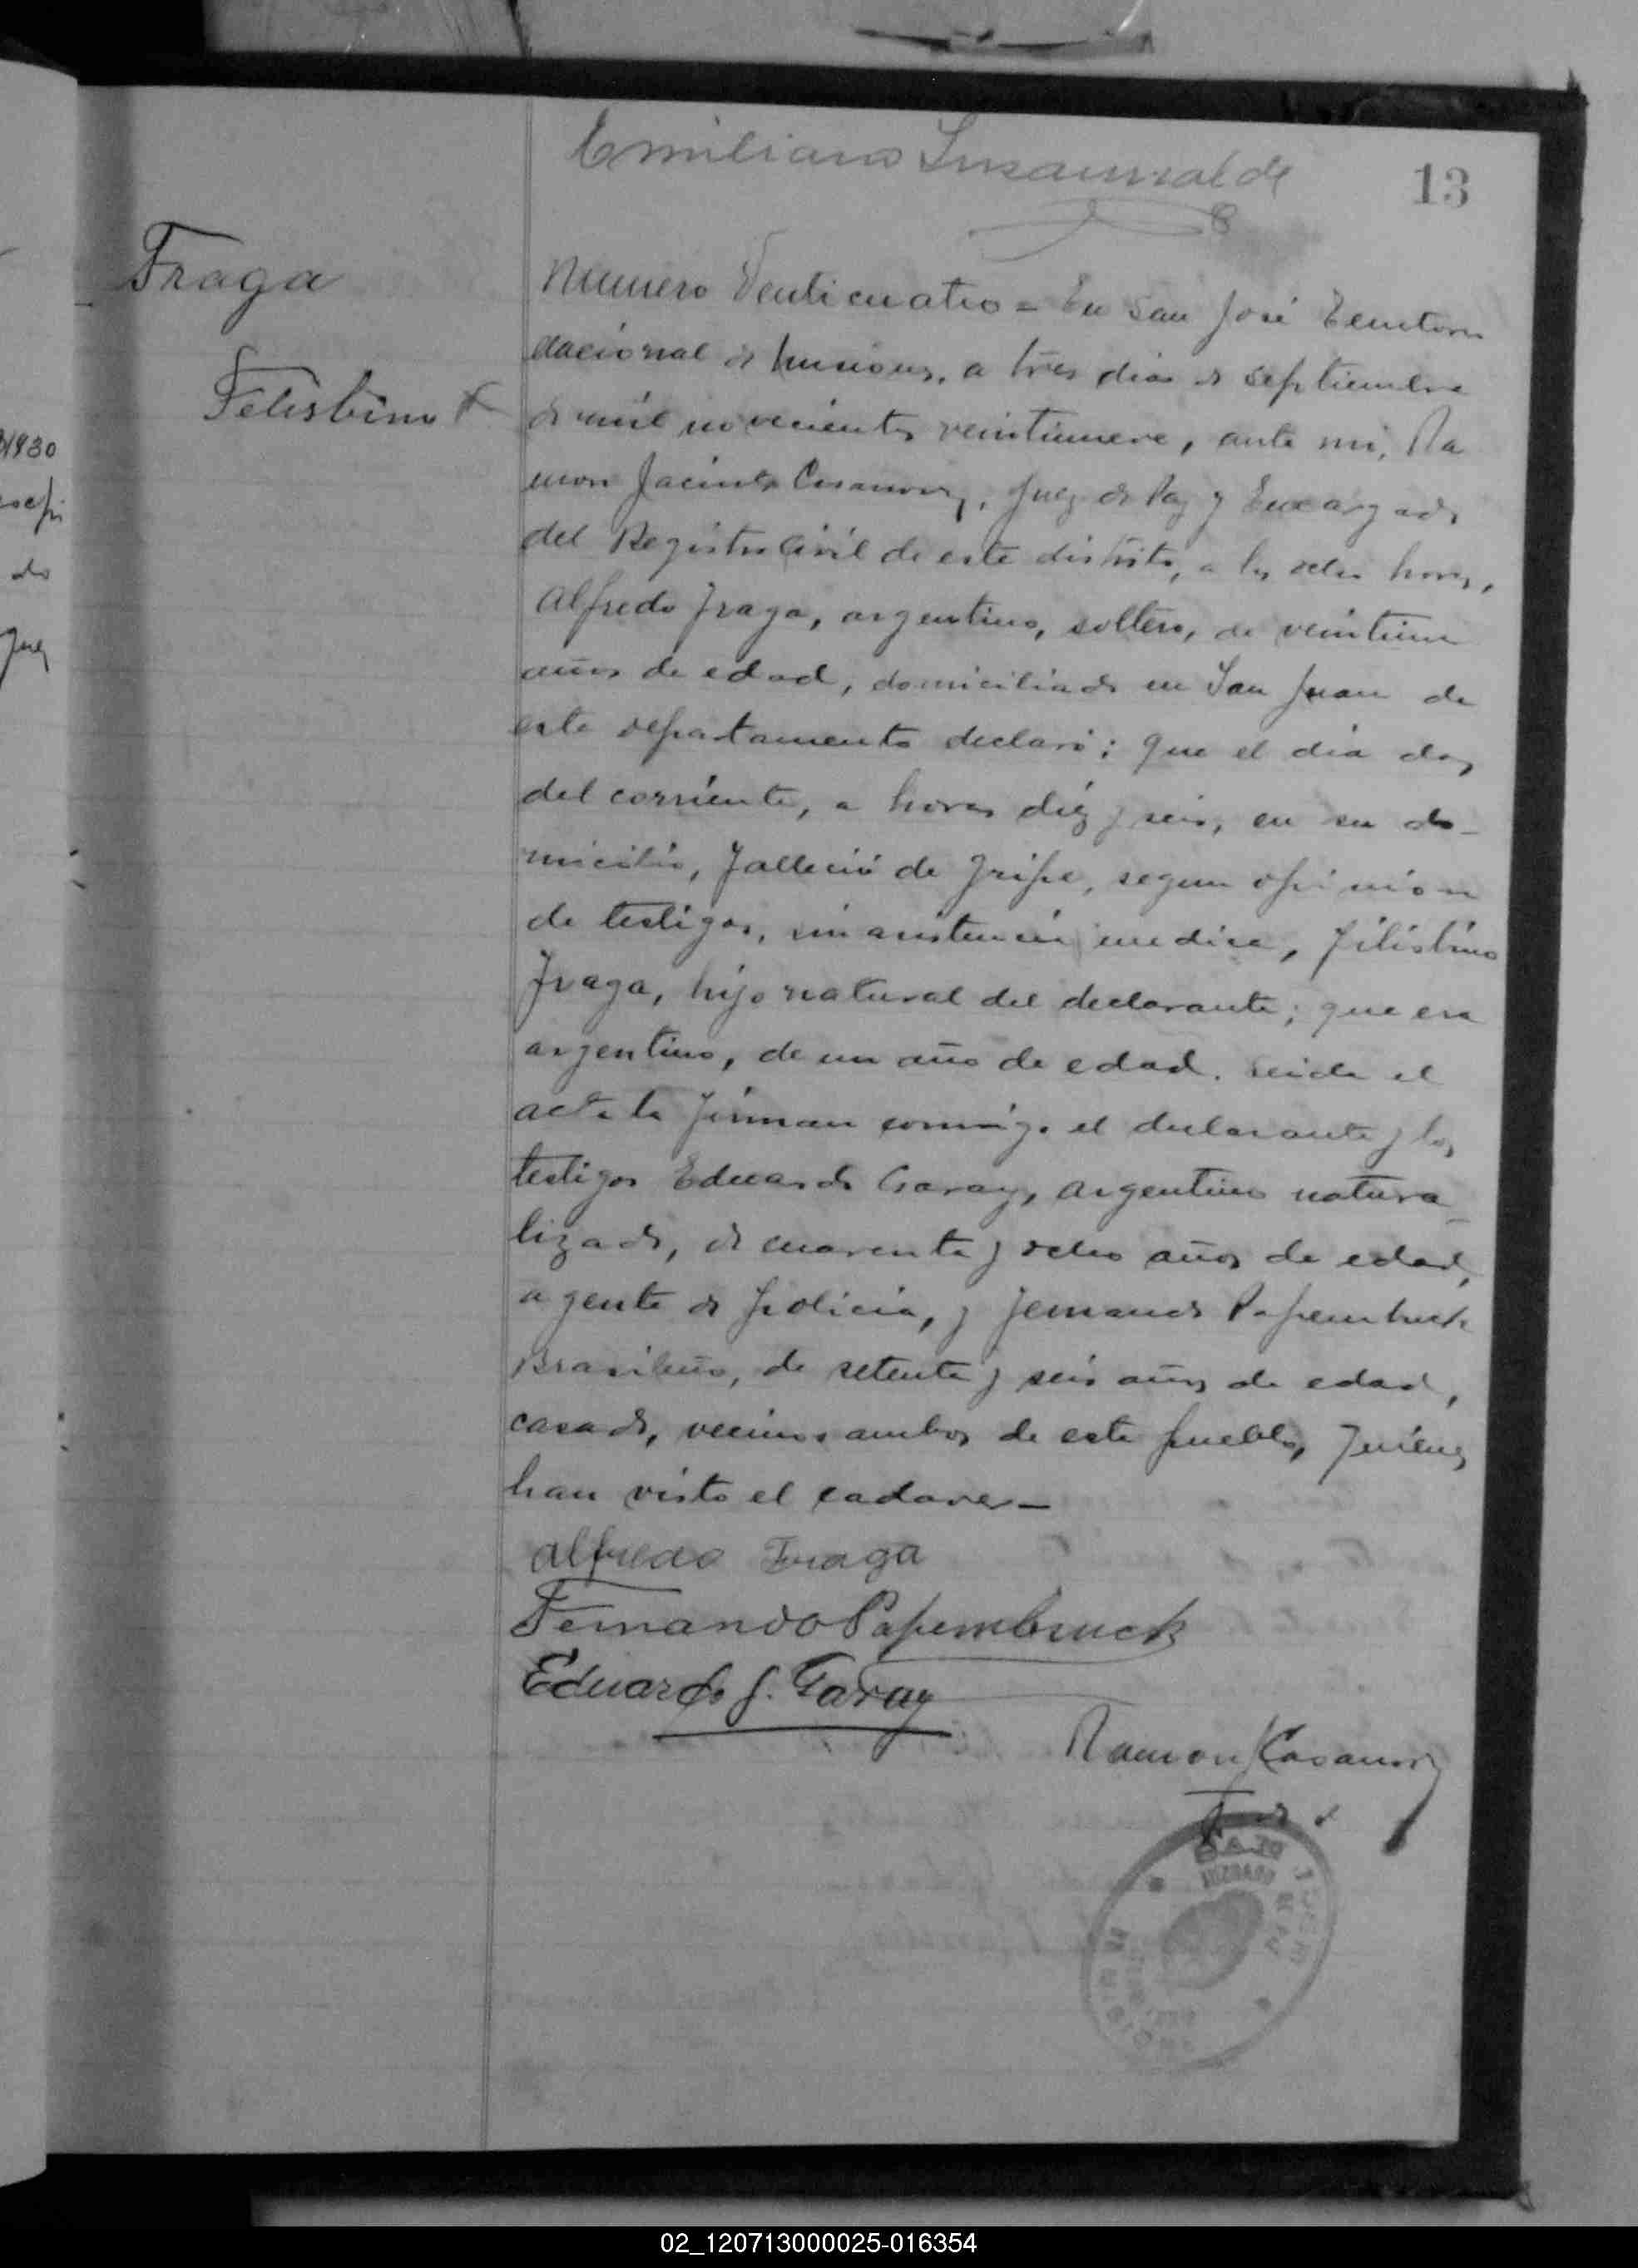 Emiliano
13
Fraga
Felisbino
1930
do
Juez
Numero Venticuatro = En San José Territorio
nacional de Misiones, a tres dias de septiembre
de mil novecientos veintinueve, ante mi, Ra
mon Jacinto Casanova, Juez de Paz y Encargado
del Registro Civil de este distrito, a las ocho horas,
Alfredo Fraga, argentino, soltero, de veintiun
años de edad, domiciliado en San Juan de
este departamento declaró; que el dia dos
del corriente, a horas diez y seis, en su do-
micilio, falleció de Gripe, segun opinion
de testigos, sin asistencia medica, Filisbino
Fraga, hijo natural del declarante; que era
argentino, de un año de edad. Leida el
acta la firman conmigo el declarante y los
testigos Eduardo Garay, argentino natura_
lizado, de cuarenta y ocho años de edad,
agente de policia, y Fernando Papembruck
Brasileño, de setenta y seis años de edad,
casado, vecinos ambos de este pueblo, quienes
han visto el cadaver—
Alfredo Fraga
Fernando Papembruck
Eduardo J. Garay
Ramon J Casanova
02_120713000025-016354